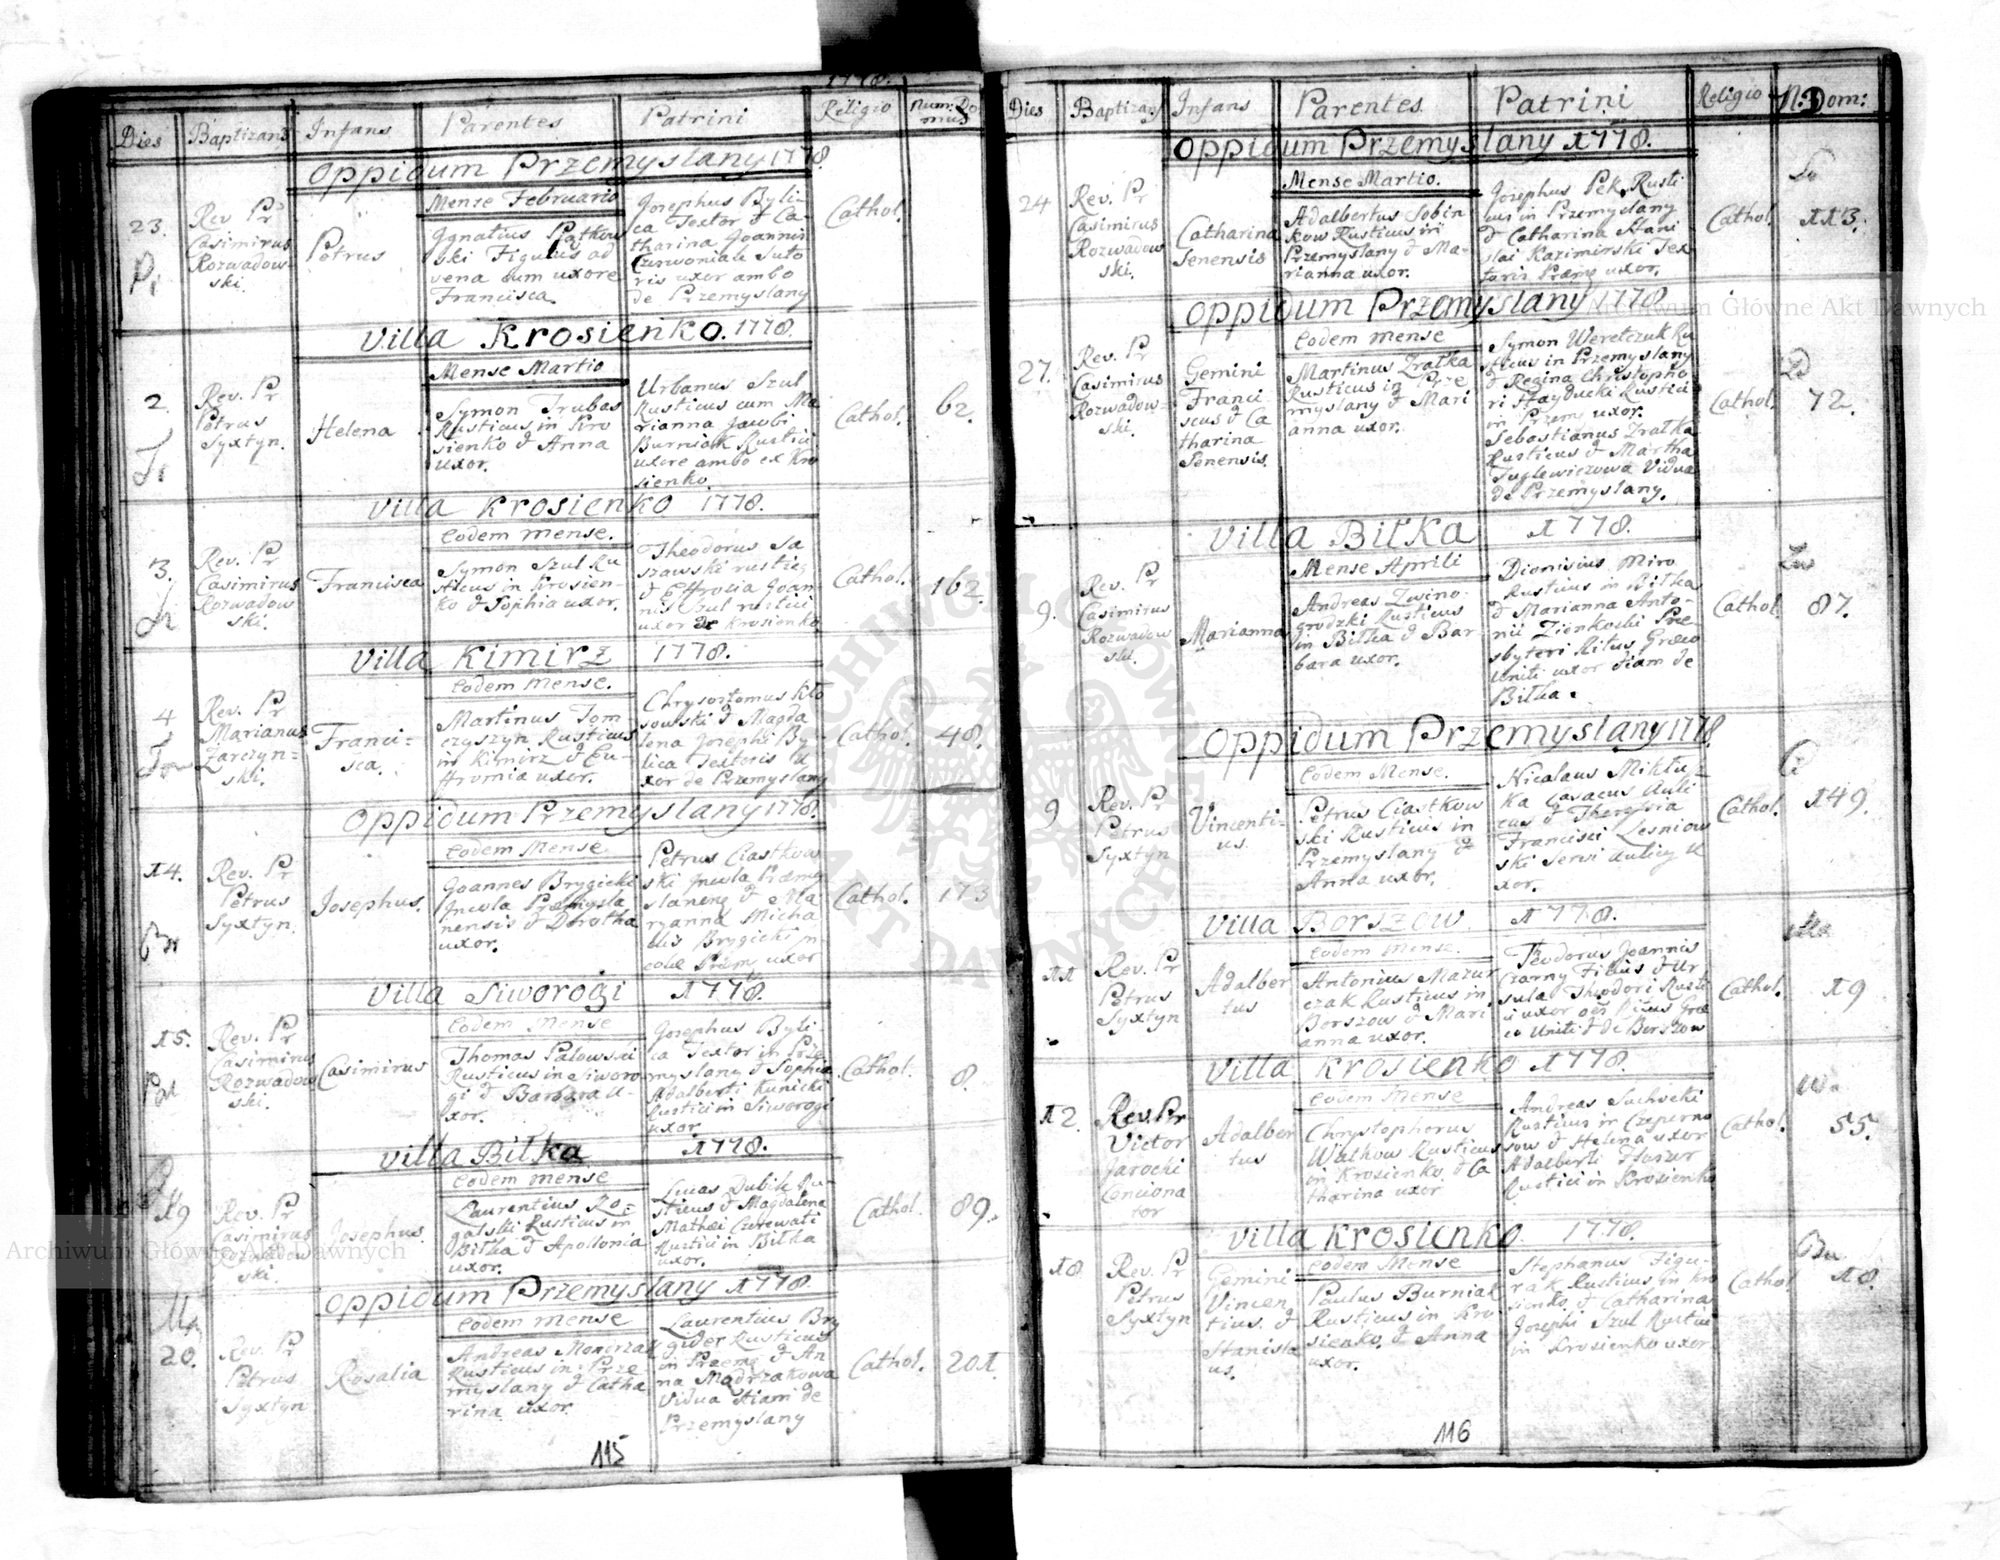 1778.
Dies Baptizans Infans Parentes Patrini Religio Num: Do
mus
Oppidum Przemyslany 1778
Mense Februario
23.
Pi
Rev Pr
Casimirus
Rozwadow-
ski.
Petrus
Ignatius Piątkow
ski Figulus ad
vena cum uxore
Francisca.
Josephus Byli-
ca Textor & Ca
tharina Joannis
Czerwoniak Suto
ris uxor ambo
de Przemyslany
Cathol.
Villa Krosienko. 1778.
Mense Martio
2.
Rev. Pr
Petrus
Syxtyn.
Helena
Symon Trubas
Rusticus in Kro
sienko & Anna
uxor.
Urbanus Szul
Rusticus cum Ma
rianna Jacobi
Burniak Rustici
uxore ambo ex Kro
sienko.
Cathol.
62.
Villa Krosienko 1778.
Eodem mense.
3.
Rev. Pr
Casimirus
Rozwadow
ski.
Francisca
Symon Szul Ru
sticus in Krosien-
ko & Sophia uxor.
Theodorus Sa
szawski rustic9
& Effrosia Joan-
nis Szul rustici
uxor de Krosienko
Cathol.
162.
Villa Kimirz 1778.
Eodem Mense.
4
Rev. Pr
Marianus
Zarczyn-
ski.
Franci-
sca.
Martinus Tom
czyszyn Rusticus
in Kimirz & Eu-
ffromia uxor.
Chrysostomus Kło
sowski & Magda
lena Josephi By-
lica Textoris U
xor de Przemyslany
Cathol.
48.
Oppidum Przemyslany 1778.
Eodem Mense
14.
Rev. Pr
Petrus
Syxtyn.
Josephus.
Joannes Brygicki
Incola Przemysla
nensis & Dorotha
uxor.
Petrus Ciastkow
ski Incola Przemy
slanens & Ma
ryanna Micha
elis Brygicki in
colae Przem uxor
Cathol.
173
Villa Siworogi 1778.
Eodem Mense
15.
Rev. Pr
Casimirus
Rozwadow
ski.
Casimirus
Thomas Palowski
Rusticus in Siworo
gi & Barbara u-
xor.
Josephus Byli
ca Textor in Prze
myslany & Sophia
Adalberti Kunicki
Rustici in Siworogi
uxor
Cathol.
8.
Villa Biłka 1778.
Eodem mense
19
Rev. Pr
Casimirus
Rozwadow
ski.
Josephus.
Laurentius Ro-
galski Rusticus in
Biłka & Apollonia
uxor.
Lucas Dubik Ru-
sticus & Magdalena
Mathei Czerewati
Rustici in Biłka
uxor.
Cathol.
89.
Oppidum Przemyslany 1778.
Eodem mense
20.
Rev. Pr
Petrus
Syxtyn
Rosalia
Andreas Mondrzak
Rusticus in Prze
myslany & Catha
rina uxor.
Laurentius Bry
gider Rusticus
in Przemy & An
na Mądrzakowa
Vidua etiam de
Przemyslany
Cathol.
201.
115
Dies Baptizans Infans Parentes Patrini Religio N: Dom:
Oppidum Przemyslany 1778.
Mense Martio.
24
Rev. Pr
Casimirus
Rozwadow
ski.
Catharina
Senensis
Adalbertus Sobin
kow Rusticus in
Przemyslany & Ma-
rianna uxor.
Josephus Pek Rusti
cus in Przemyslany
& Catharina Stani
slai Kazimirski Tex-
toris Przemy uxor.
Cathol.
113.
Oppidum Przemyslany 1778
Eodem mense
27.
Rev. Pr
Casimirus
Rozwadow-
ski.
Gemini
Franci-
scus & Ca
tharina
Senensis.
Martinus Zratka
Rusticus in Prze
myslany & Mari
anna uxor.
Symon Weretczuk Ru
sticus in Przemyslany
& Regina Christopho-
ri Hayducki Rustici
in Przem uxor.
Sebastianus Zratka
Rusticus & Martha
Juglewiczowa Vidua
de Przemyslany.
Cathol.
72.
Villa Biłka 1778.
Mense Aprili
9.
Rev. Pr
Casimirus
Rozwadow
ski.
Marianna
Andreas Zwino-
grodzki Rusticus
in Biłka & Bar-
bara uxor.
Dionisius Miro
Rusticus in Biłka
& Marianna Anto-
nii Zienkoski Prae-
sbyteri Ritus Graeco
Uniti uxor etiam de
Biłka.
Cathol
87.
Oppidum Przemyslany 1778.
Eodem Mense.
9
Rev. Pr
Petrus
Syxtyn
Vincenti-
us.
Petrus Ciastkow
ski Rusticus in
Przemyslany &
Anna uxor.
Nicolaus Mikłu-
ka Cosacus Auli
cus & Theressia
Francisci Lesniow
ski Servi Aulicy U
xor.
Cathol.
149.
Villa Borszow 1778.
Eodem Mense.
11
Rev. Pr
Petrus
Syxtyn
Adalber
tus
Antonius Mazur
czak Rusticus in
Borszow & Mari
anna uxor.
Teodorus Joannis
Czarny Filius & Ur
sula Theodori Rusti
ci uxor Ritus Grae
co Uniti & de Borszow
Cathol.
19
Villa Krosienko 1778.
Eodem Mense
12.
Rev. Pr
Victor
Jarocki
Conciona
tor
Adalber
tus
Chrystophorus
Wałkow Rusticus
in Krosienko. & Ca
tharina uxor
Andreas Suchecki
Rusticus in Czeperno
sow & Helena uxor
Adalberti Mazur
Rustici in Krosienko
Cathol.
55.
Villa Krosienko 1778.
Eodem Mense
18
Rev. Pr
Petrus
Syxtyn
Gemini
Vincen
tius. &
Stanisla
us.
Paulus Burniak
Rusticus in Kro-
sienko. & Anna
uxor.
Stephanus Figu-
rak Rusticus in Kro
sienko. & Catharina
Josephi Szul Rustici
in Krosienko uxor
Cathol.
18.
116
Archiwum Główne Akt Dawnych
Archiwum Główne Akt Dawnych
ARCHIWUM GŁÓWNE AKT DAWNYCH